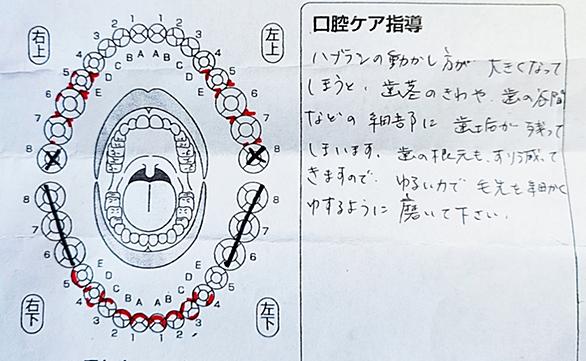 口腔ケア指導
ハブラシの動かし方が 大きくなって
しまうと、歯茎のきわや、歯の谷間
などの細部に 歯垢が残って
しまいます。歯の根元も、すり減って
きますので、ゆるい力で 毛先を細かく
ゆするように 磨いて下さい。
右上
左上
右下
左下
1 1
2 2
3 3
4 4
5 5
6 6
7 7
8 8
A A
B B
C C
D D
E E
8 8
7 7
6 6
5 5
4 4
3 3
2 2
1 1
E E
D D
C C
B A A B C